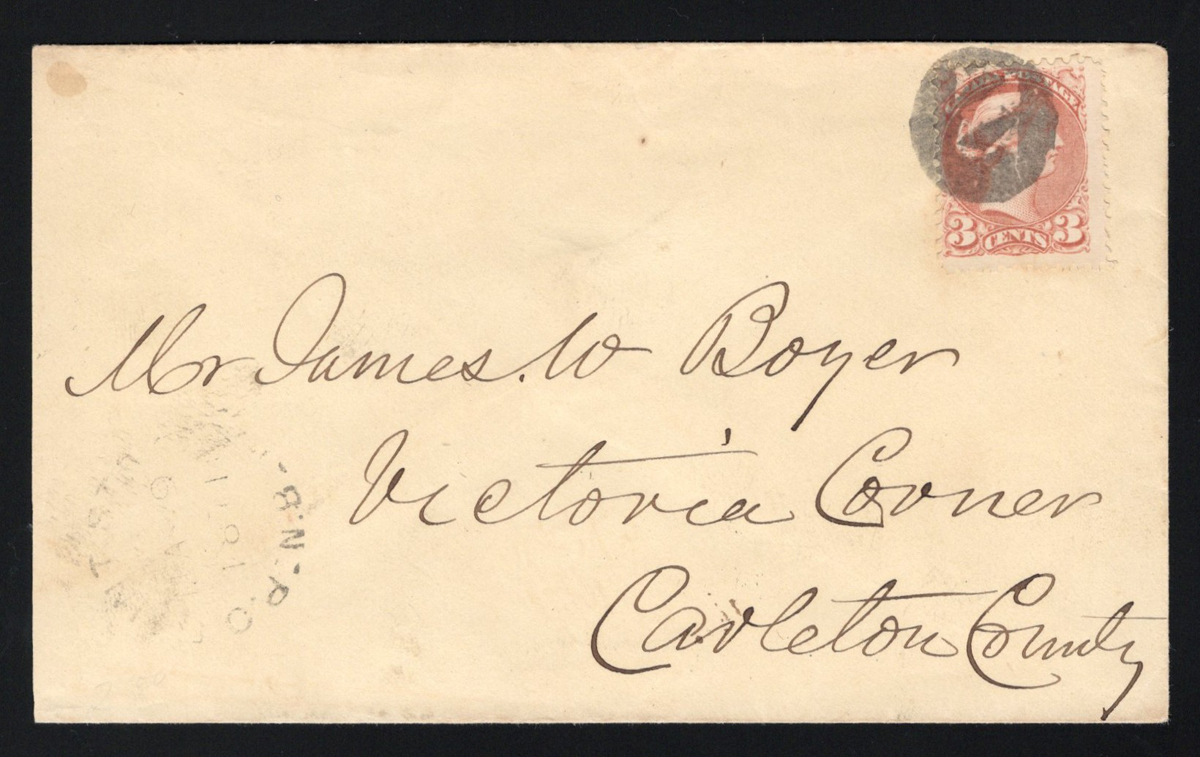 POSTAGE
3 CENTS 3
Mr James. W Boyer
Victoria Corner
Carleton County